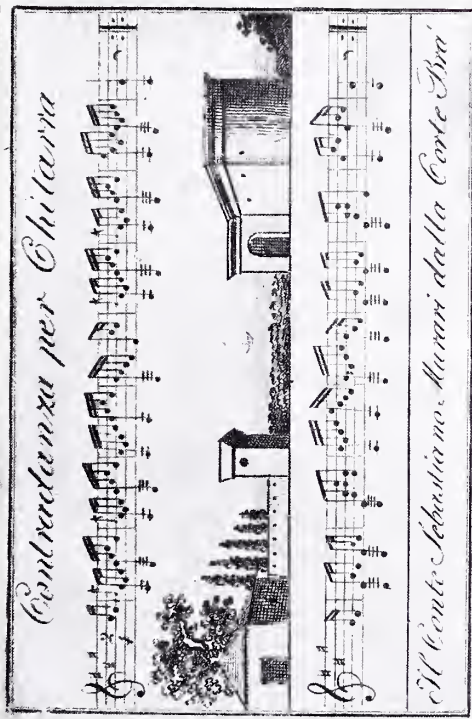 Contradanza per Chitarra
Il Conte Sebastiano Murari dalla Corte Brà